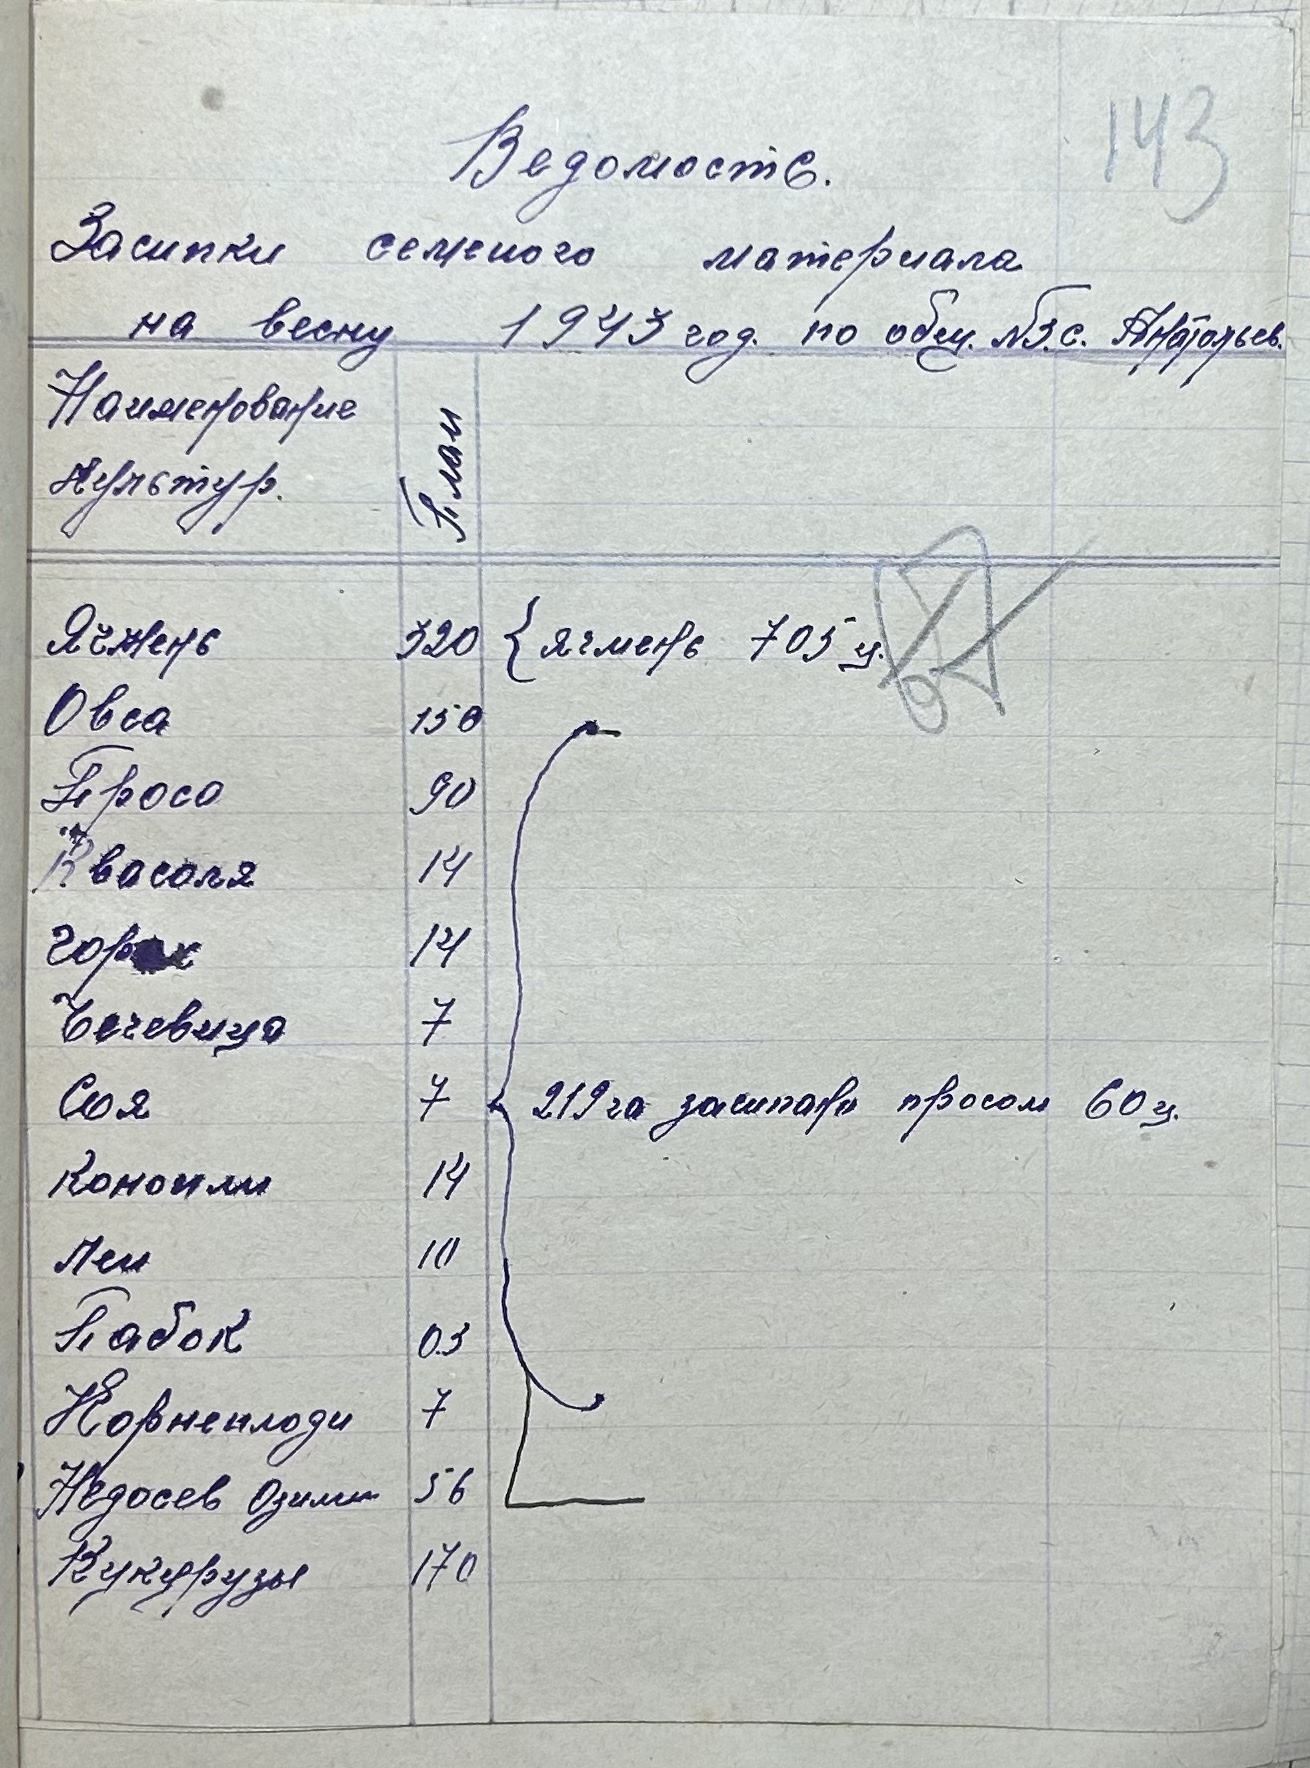 143
Ведомость.
Засипки семеного материала
на весну 1943 год. по общ. №3. с. Анатольев.
Наименование
культур.
План
Ячмень 320 { ячмень 705 ц.
Овса 150
Проса 90
Квасоля 14
горох 14
Чечевица 7
Соя 7 219 га засипано просом 60 ц.
Конопли 14
Лен 10
Табок 0.3
Корнеплоди 7
Недосев Озими 56
Кукурузы 170